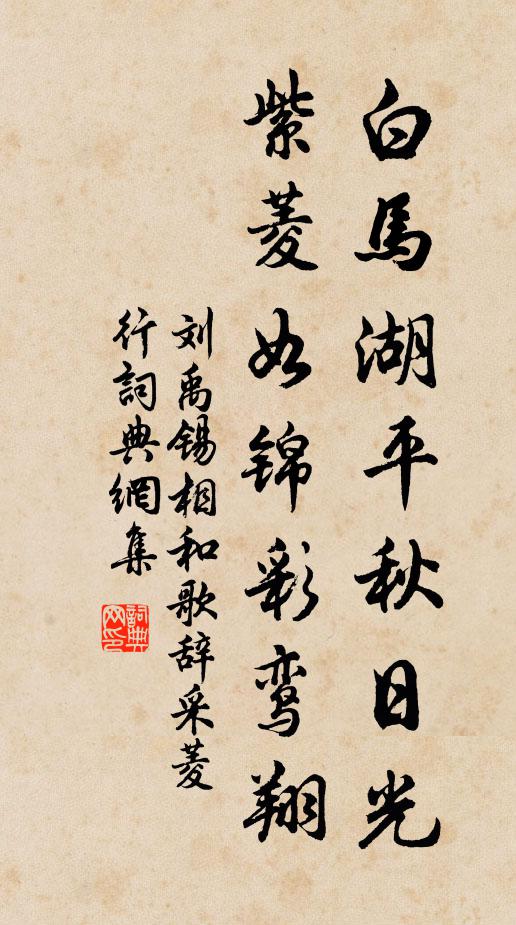 白馬湖平秋日光
紫菱如锦彩鸾翔
刘禹锡相和歌辞采菱
行詞典網集
詞典
网印